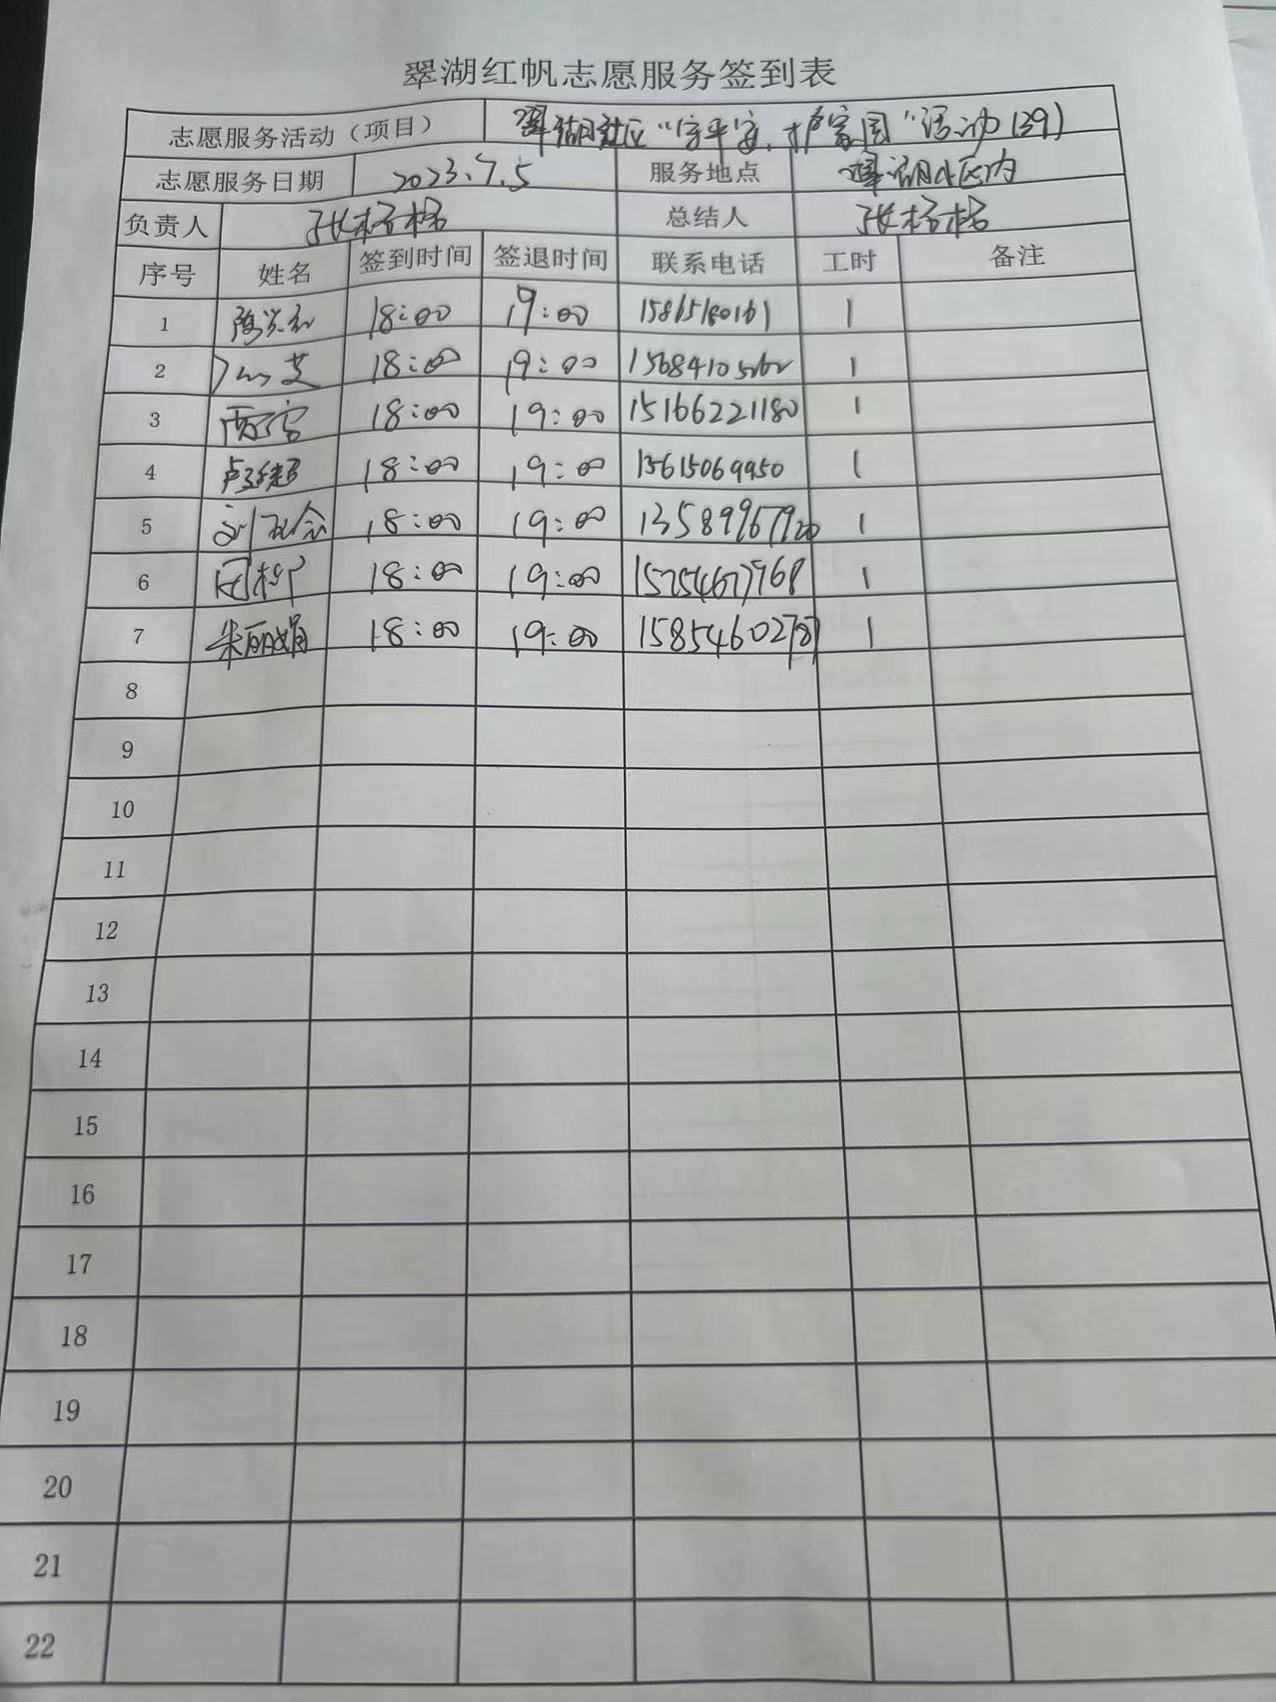 翠湖红帆志愿服务签到表
志愿服务活动（项目） 翠湖社区“守平安，护家园”活动（39）
志愿服务日期 2023.7.5 服务地点 翠湖小区内
负责人 张格格 总结人 张格格
序号 姓名 签到时间 签退时间 联系电话 工时 备注
1 18:00 19:00 15865180161 1
2 18:00 19:00 1
3 18:00 19:00 15166221180 1
4 18:00 19:00 15615069950 1
5 18:00 19:00 13589967920 1
6 18:00 19:00 1
7 朱丽娟 18:00 19:00 15854602787 1
8
9
10
11
12
13
14
15
16
17
18
19
20
21
22